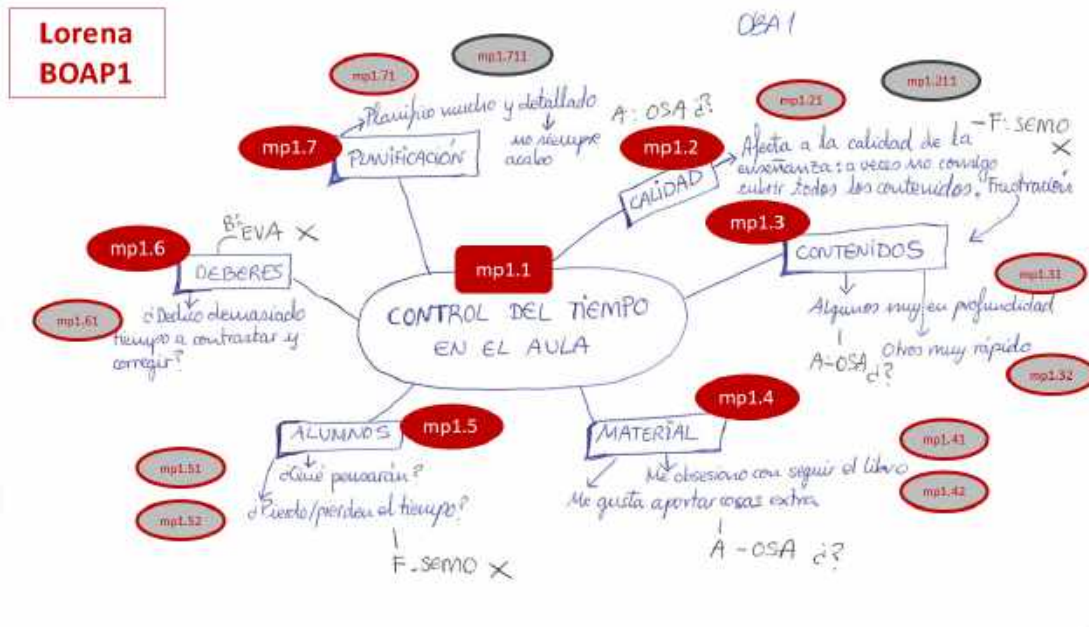 Lorena
BOAP1
OBA1
mp1.71
mp1.711
mp1.7
Planifico mucho y detallado
no siempre
acabo
PLANIFICACIÓN
A: OSA ¿?
mp1.2
CALIDAD
mp1.21
mp1.211
Afecta a la calidad de la
enseñanza: a veces no consigo
cubrir todos los contenidos. Frustración
-F: SEMO
X
mp1.3
CONTENIDOS
mp1.31
Algunos muy en profundidad
Otros muy rápido
A-OSA ¿?
mp1.32
mp1.6
B: EVA X
DEBERES
mp1.61
¿Dedico demasiado
tiempo a contrastar y
corregir?
mp1.1
CONTROL DEL TIEMPO
EN EL AULA
mp1.5
ALUMNOS
mp1.51
¿Qué pensarán?
mp1.52
¿Pierdo/pierden el tiempo?
F-SEMO X
mp1.4
MATERIAL
mp1.41
Me obsesiono con seguir el libro
mp1.42
Me gusta aportar cosas extra
A-OSA ¿?